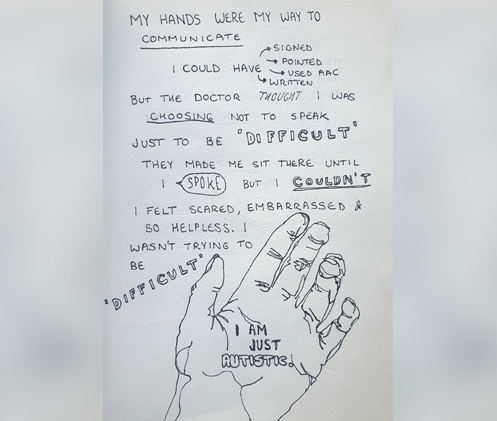 MY HANDS WERE MY WAY TO
COMMUNICATE
I COULD HAVE
SIGNED
POINTED
USED AAC
WRITTEN
BUT THE DOCTOR THOUGHT I WAS
CHOOSING NOT TO SPEAK
JUST TO BE 'DIFFICULT'
THEY MADE ME SIT THERE UNTIL
I SPOKE BUT I COULDN'T
I FELT SCARED, EMBARRASSED &
SO HELPLESS. I
WASN'T TRYING TO
BE
'DIFFICULT'
I AM
JUST
AUTISTIC.